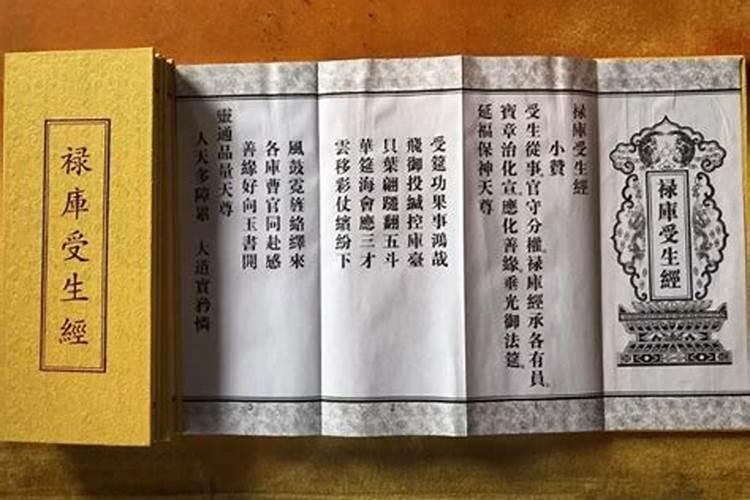 祿庫受生經
祿庫受生經
祿庫受生經
小贊
受生從事官守分權。祿庫經承各有員。
寶章治化宣。應化善緣。垂光御法筵。
延福保神天尊
受筵功果事鴻哉
飛御投緘控庫臺
貝葉翩躚翻五斗
華筵海會應三才
雲移彩仗繽紛下
風鼓霓旌絡繹來
各庫曹官同赴感
善緣好向玉書開
靈通品量天尊
人天多障累 大道實矜憐